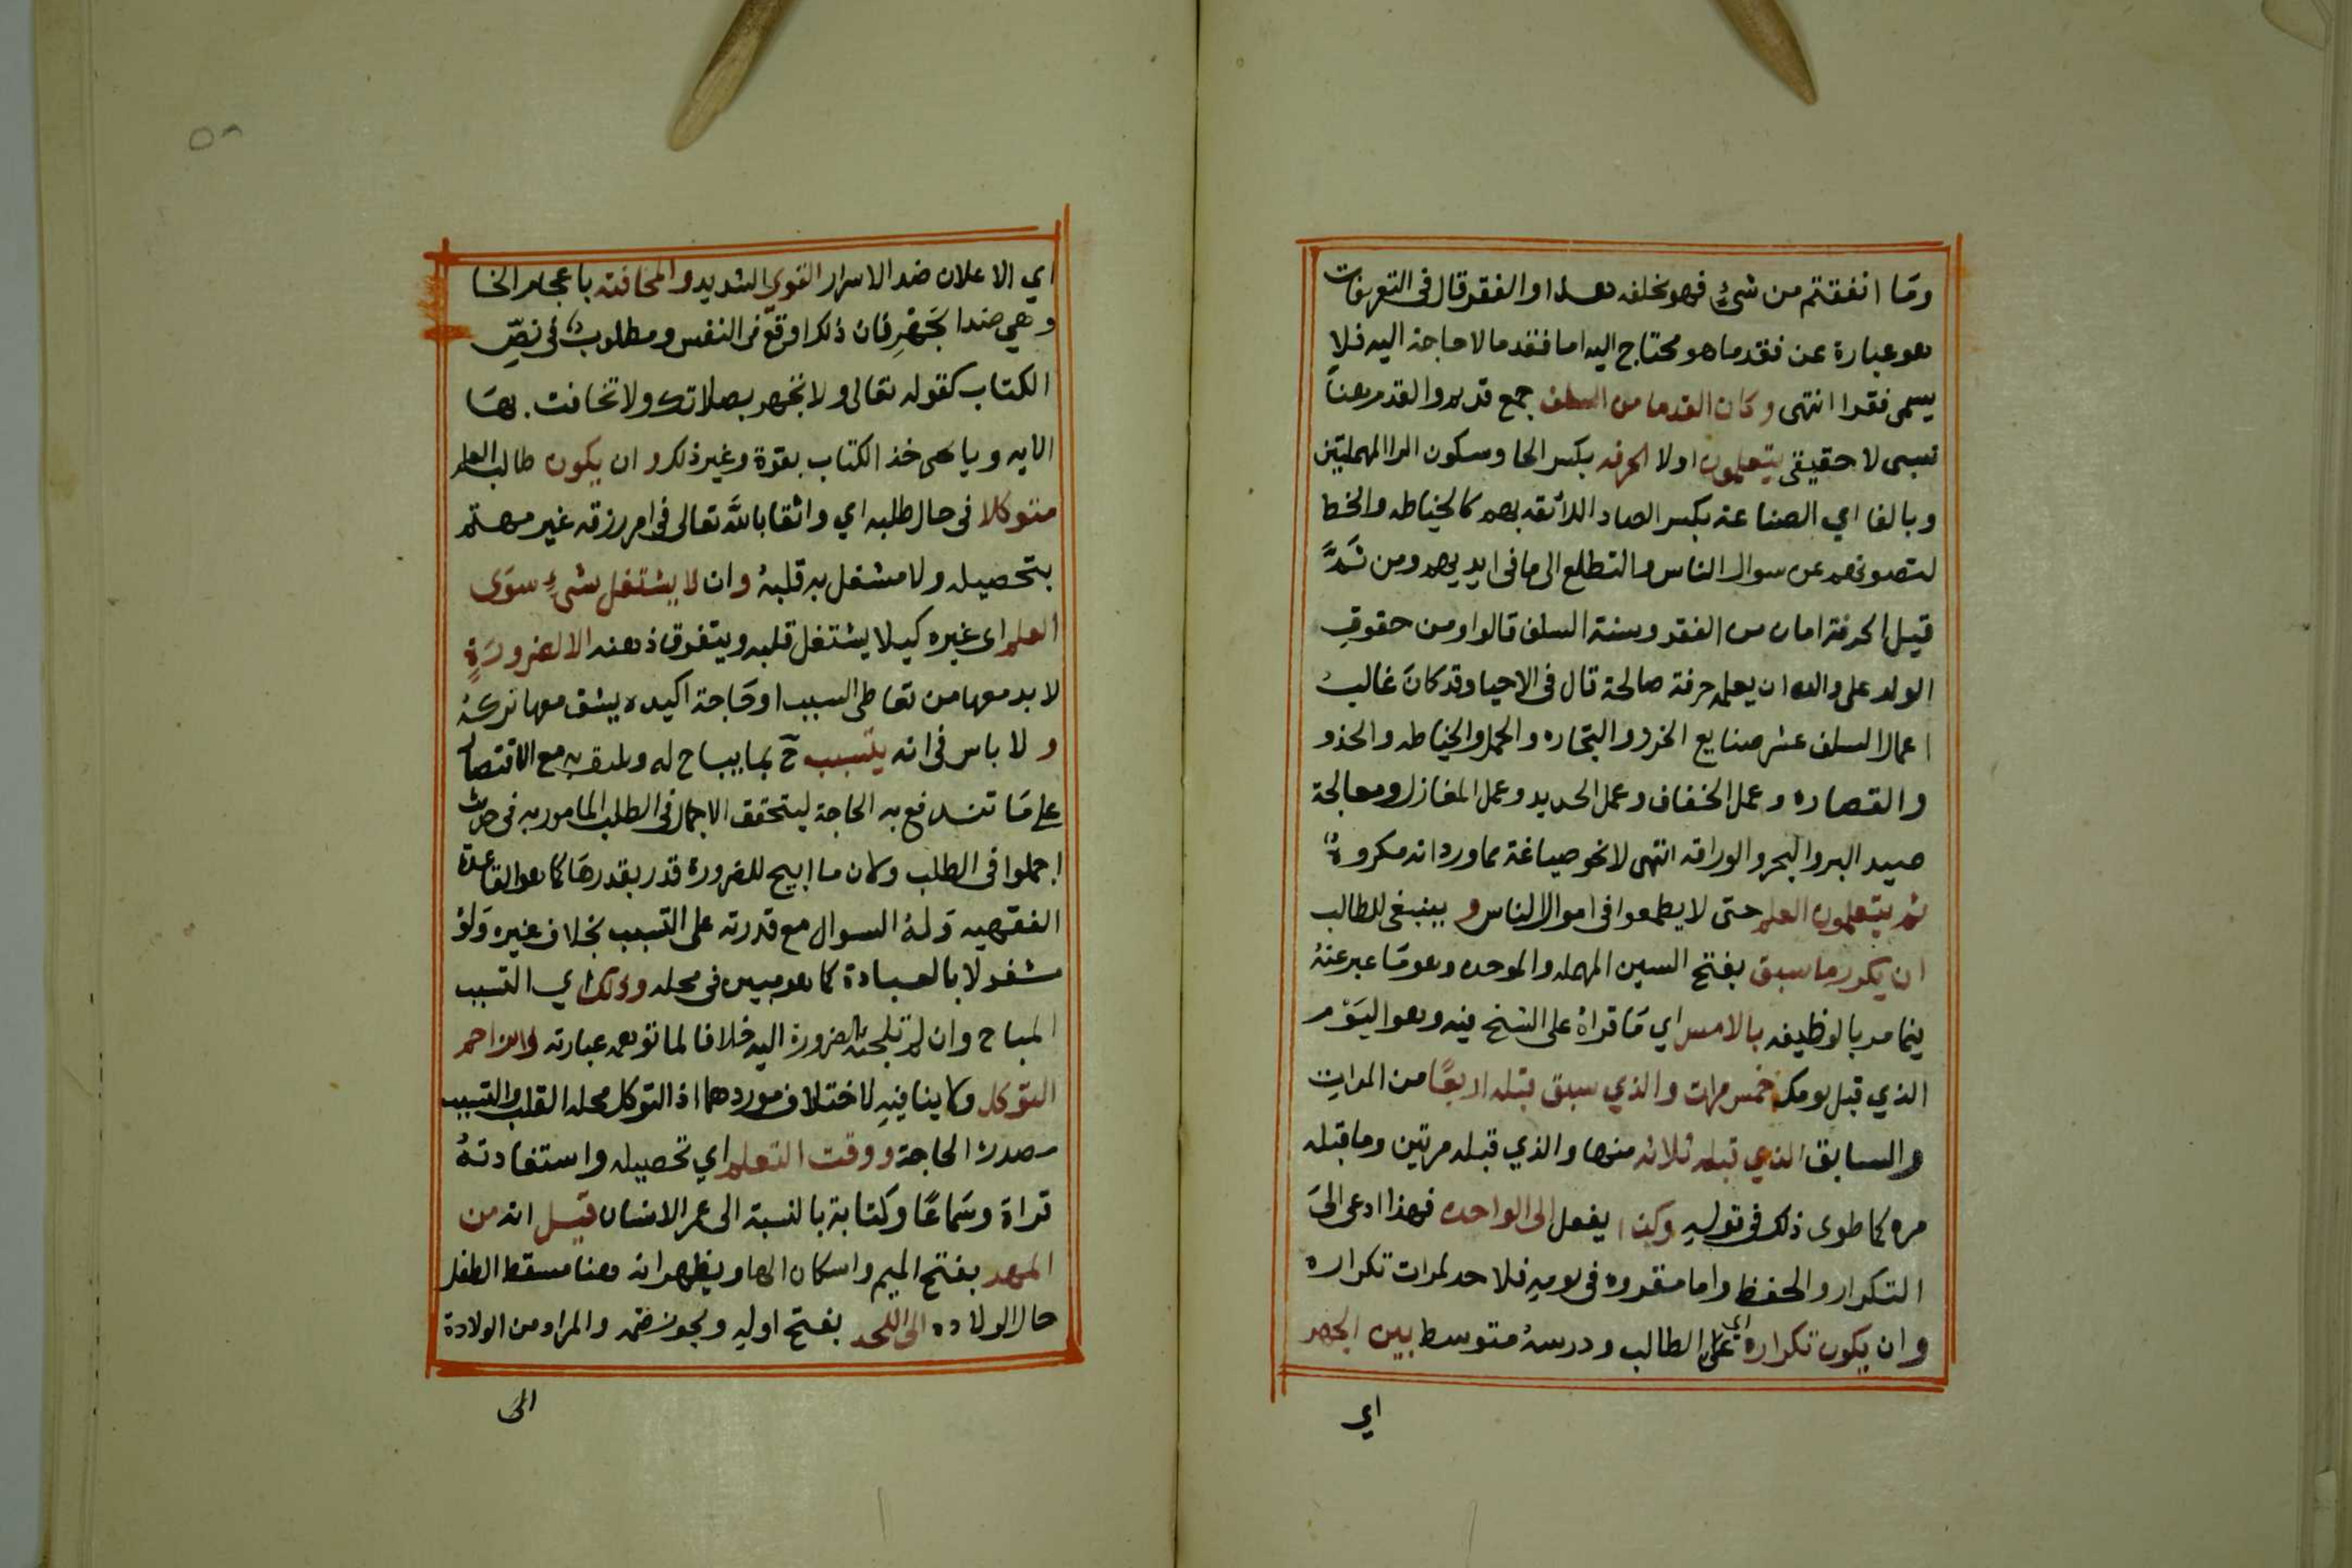 وما انفقتم من شيء فهو يخلفه هذا والفقر قال في التعريفات
هو عبارة عن فقد ما هو محتاج اليه اما فقد مالا حاجة اليه فلا
يسمى فقرا انتهى وكان القدما من السلف جمع قديم والقدم هنا
نسبى لا حقيقي يتعلمون اولا الحرفه بكسر الحا وسكون الرا المهملتين
وبالفا اي الصناعة بكسر الصاد اللائقه بهم كالخياطه والخط
لتصونهم عن سوال الناس والتطلع الى ما في ايديهم ومن ثَمَّ
قيل الحرفة امان من الفقر وسنة السلف قالوا ومن حقوق
الولد على والده ان يعلمه حرفة صالحة قال في الاحيا وقد كان غالب
اعمال السلف عشر صنايع الخرز والتجاره والحمل والخياطه والحذو
والقصاره وعمل الخفاف وعمل الحديد وعمل المغازل ومعالجة
صيد البر والبحر والوراقه انتهى لا نحو صياغة مما ورد انه مكروه
ثم يتعلمون العلم حتى لا يطمعوا في اموال الناس وينبغي للطالب
ان يكرر ما سبق بفتح السين المهمله والموحده وهو ما عبر عنه
فيما مر بالوظيفه بالامس اي ما قراه على الشيخ فيه وهو اليوم
الذي قبل يومك خمس مرات والذي سبق قبله اربعًا من المرات
والسابق الذي قبله ثلاثه منها والذي قبله مرتين وما قبله
مره كما طوى ذلك في قوله وكذا يفعل الى الواحده فهذا ادعى الى
التكرار والحفظ واما مقروه في يومه فلا حد لمرات تكراره
وان يكون تكراره اي علم الطالب ودرسه متوسط بين الجهر
اي
اي الاعلان ضد الاسرار القوي الشديد والمخافته باعجام الخا
وهي ضد الجَهْرِ فان ذلك اوقع في النفس ومطلوب في نصِّ
الكتاب كقوله تعالى ولا تجهر بصلاتك ولا تخافت بها
الايه ويا يحى خذ الكتاب بقوة وغير ذلك وان يكون طالب العلم
متوكلا في حال طلبه اي واثقا بالله تعالى في امر رزقه غير مهتم
بتحصيله ولا مشغل به قلبه وان لا يشتغل بشيء سوى
العلم اى غيره كيلا يشتغل قلبه ويتفوق ذهنه الا لضرورةٍ
لا بد معها من تعاطى السبب او حاجة اكيده يشق معها تركه
ولا باس في انه يتسبب ح بما يباح له ويليق به مع الاقتصار
على ما تندفع به الحاجة ليتحقق الاجمال في الطلب المامور به في حديث
اجملوا في الطلب ولان ما ابيح للضرورة قدر بقدرها كما هو القاعدة
الفقهيه وله السوال مع قدرته على التسبب بخلاف غيره ولو
مشغولا بالعبادة كما هو مبين في محله وذلك اي التسبب
المباح وان لم تلجئه الضرورة اليه خلافا لما توهمه عبارته لا يزاحم
التوكل ولا ينافيه لاختلاف موردهما اذ التوكل محله القلب والتسبب
مصدره الحاجة ووقت التعلم اي تحصيله واستفادته
قراة وسماعًا وكتابة بالنسبة الى عمر الانسان قيل انه من
المهد بفتح الميم واسكان الها ويظهر انه هنا مسقط الطفل
حال الولاده الى اللحد بفتح اوله ويجوز ضمه والمراد من الولادة
الى